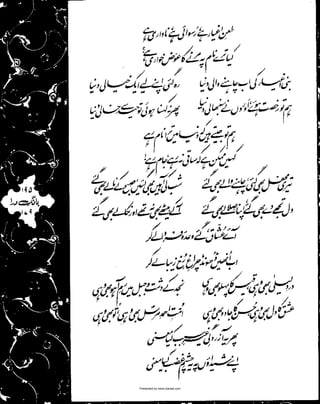 طعنِ اغیار ہے، رسوائی ہے، ناداری ہے
کیا ترے نام پہ مرنے کا عوض خواری ہے؟
بنی اغیار کی اب چاہنے والی دنیا رہ گئی اپنے لیے ایک خیالی دنیا
ہم تو رخصت ہوئے، اوروں نے سنبھالی دنیا پھر نہ کہنا ہوئی توحید سے خالی دنیا
ہم تو جیتے ہیں کہ دنیا میں ترا نام رہے
کہیں ممکن ہے کہ ساقی نہ رہے، جام رہے!
تیری محفل بھی گئی، چاہنے والے بھی گئے شب کی آہیں بھی گئیں، صبح کے نالے بھی گئے
دل تجھے دے بھی گئے، اپنا صلا لے بھی گئے آ کے بیٹھے بھی نہ تھے اور نکالے بھی گئے
آئے عشّاق، گئے وعدۂ فردا لے کر
اب اُنھیں ڈھونڈ چراغِ رُخِ زیبا لے کر
دردِ لیلیٰ بھی وہی، قیس کا پہلو بھی وہی نجد کے دشت و جبل میں رمِ آہو بھی وہی
عشق کا دل بھی وہی، حسن کا جادو بھی وہی اُمّتِ احمدِ مرسل بھی وہی، تو بھی وہی
پھر یہ آزردگیِ غیرِ سبب کیا معنی
اپنے شیداؤں پہ یہ چشمِ غضب کیا معنی
بانگِ درا